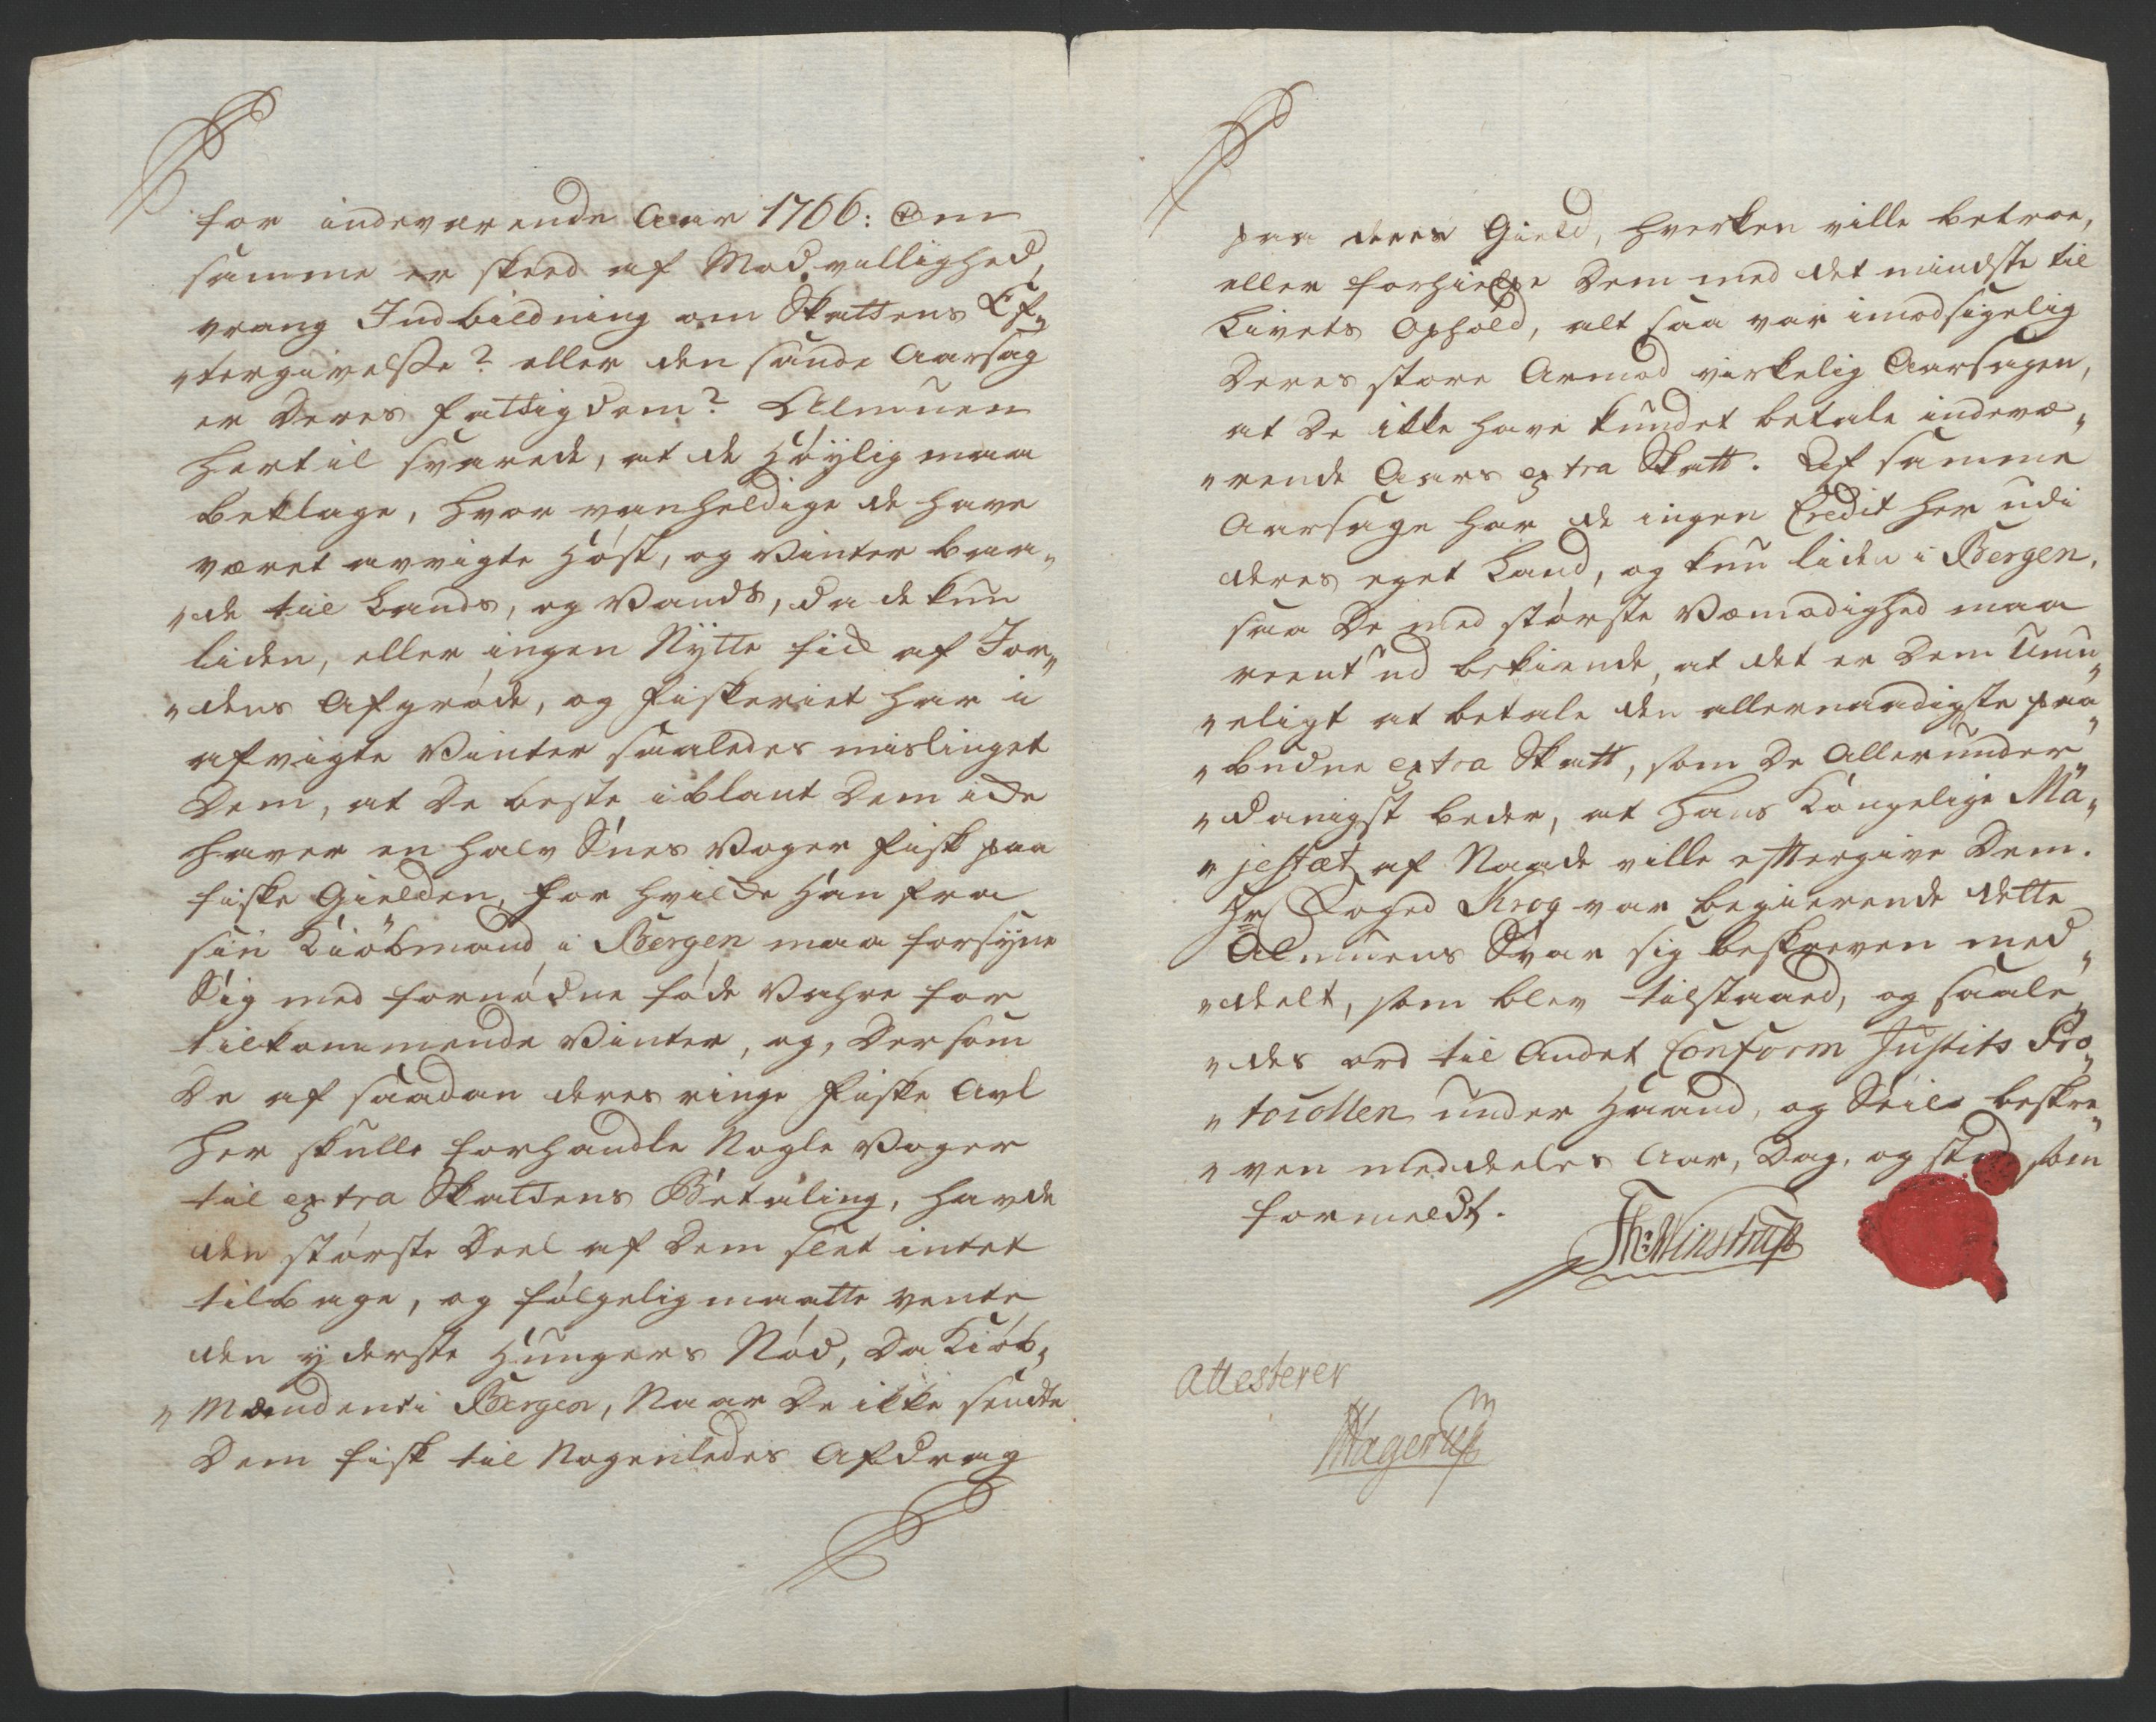 for indeværende Aar 1766: Om
samme er skeed af Modvillighed,
vrang Indbildning om Skattens Ef„
„tergivelsse? eller den sande Aarsag
er Deres fattigdom? Almuen
hertil svarede, at de Höylig maa
beklage, hvor vanheldige de have
været avvigte Höst, og Vinter baa„
„de til Lands, og Vands, da de kun
liden, eller ingen Nytte fik af Jor„
„dens Afgröde, og fiskeriet har i
afvigte Vinter saaledes mislinget
Dem, at De beste iblant Dem icke
haver en halv Snes Voger fisk paa
fiske Gielden, for hvilcke Han fra
sin Kiöbmand i Bergen maa forsyne
Sig med fornödne föde Vahre for
tilkommende Vinter, og, Dersom
De af saadan deres ringe fiske Avl
her skulle forhandle Nogle Voger
til extra Skattens Betaling, havde
den störste Deel af Dem slet intet
tilbage, og fölgelig maatte vente
den yderste Hungers Nöd, Da Kiöb„
„mændene i Bergen, Naar De ikke sendte
Dem fisk til Nogenledes Afdrag
paa deres Gield, hverken ville betroe,
eller forhielpe Dem med det mindste til
Livets Ophold, alt saa var imodsigelig
Deres store Armod virkelig Aarsagen,
at De ikke have kundet betale indevæ„
„rende Aars extra Skatt. Af samme
Aarsage har de ingen Credit her udi
deres eget Land, og kun liden i Bergen,
saa De med störste Væmodighed maa
reent ud bekiende, at det er Dem Umu„
„eligt at betale den allernaadigste paa„
„budne extra Skatt, som De Allerunder„
„danigst beder, at Hans Kongelige Ma„
„jestæt af Naade ville eftergive Dem.
Hr Foged Krog var begierende dette
Almuens Svar sig beskreven med„
„deelt, som blev tilstaaed, og saale„
„des ord til Andet Conform Justits Pro„
„tocollen under Haand, og Seile beskre„
„ven meddeeles Aar, Dag, og sted som
formeldt.
Th: Winstrup
Attesterer
Hagerup